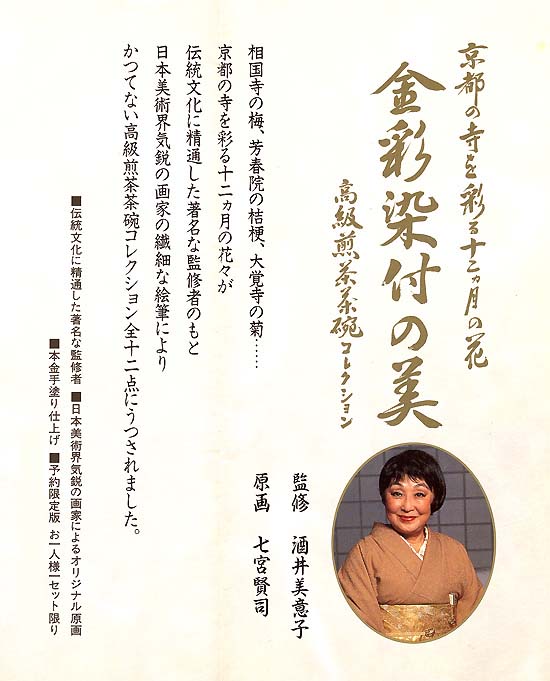 京都の寺を彩る十二ヵ月の花
金彩染付の美
高級煎茶茶碗コレクション
監修　酒井美意子
原画　七宮賢司
相国寺の梅、芳春院の桔梗、大覚寺の菊……
京都の寺を彩る十二ヵ月の花々が
伝統文化に精通した著名な監修者のもと
日本美術界気鋭の画家の繊細な絵筆により
かつてない高級煎茶茶碗コレクション全十二点にうつされました。
■伝統文化に精通した著名な監修者　■日本美術界気鋭の画家によるオリジナル原画
■本金手塗り仕上げ　■予約限定版　お一人様一セット限り